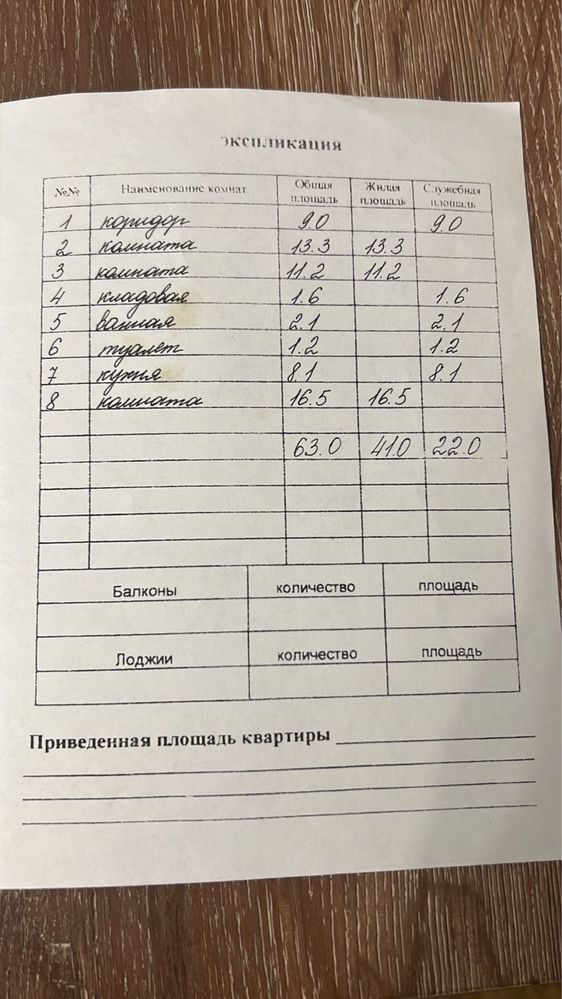 экспликация
№№ Наименование комнат Общая площадь Жилая площадь Служебная площадь
1 коридор 9.0 9.0
2 комната 13.3 13.3
3 комната 11.2 11.2
4 кладовая 1.6 1.6
5 ванная 2.1 2.1
6 туалет 1.2 1.2
7 кухня 8.1 8.1
8 комната 16.5 16.5
63.0 41.0 22.0
Балконы количество площадь
Лоджии количество площадь
Приведенная площадь квартиры